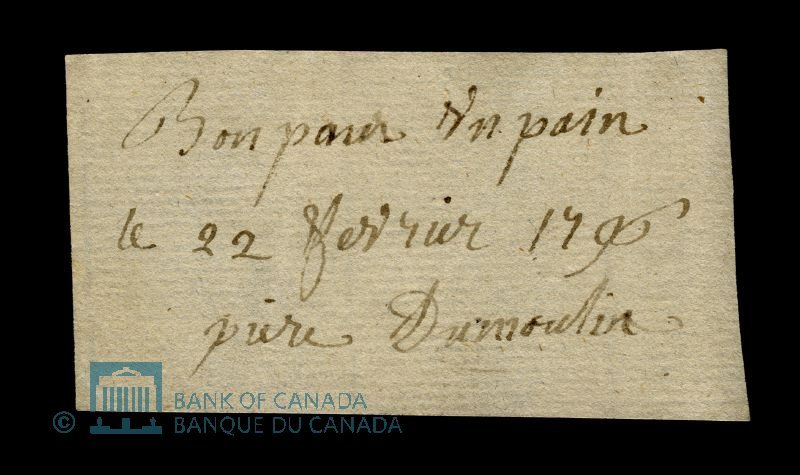 Bon pour Un pain
le 22 fevrier 1796
piere Dumoulin
© BANK OF CANADA
BANQUE DU CANADA